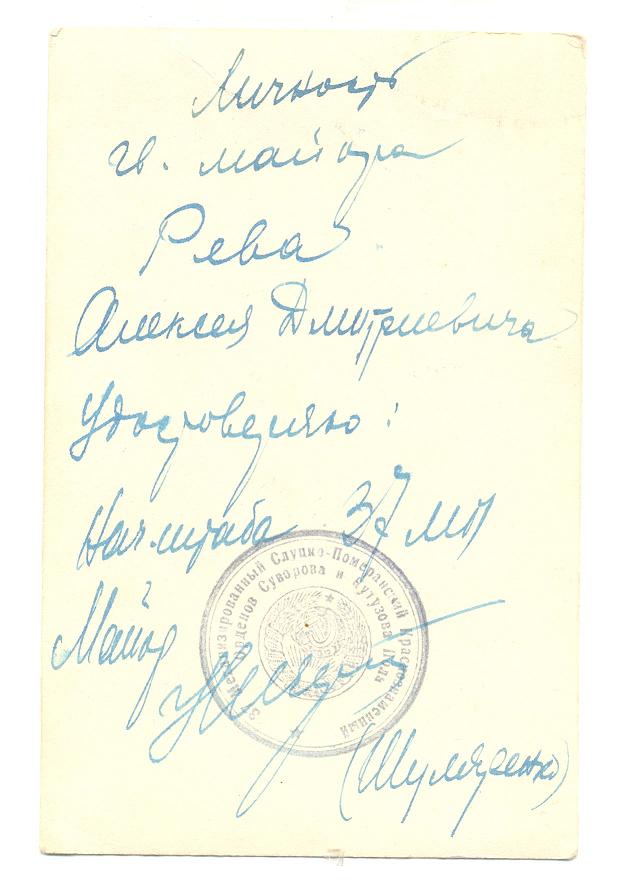 Личность
гв. майора
Рева
Алексея Дмитриевича
Удостоверяю:
Начштаба 37 мп
Майор
(Шумяренко)
Механизированный Слуцко-Померанский Краснознаменный
орденов Суворова и Кутузова полк